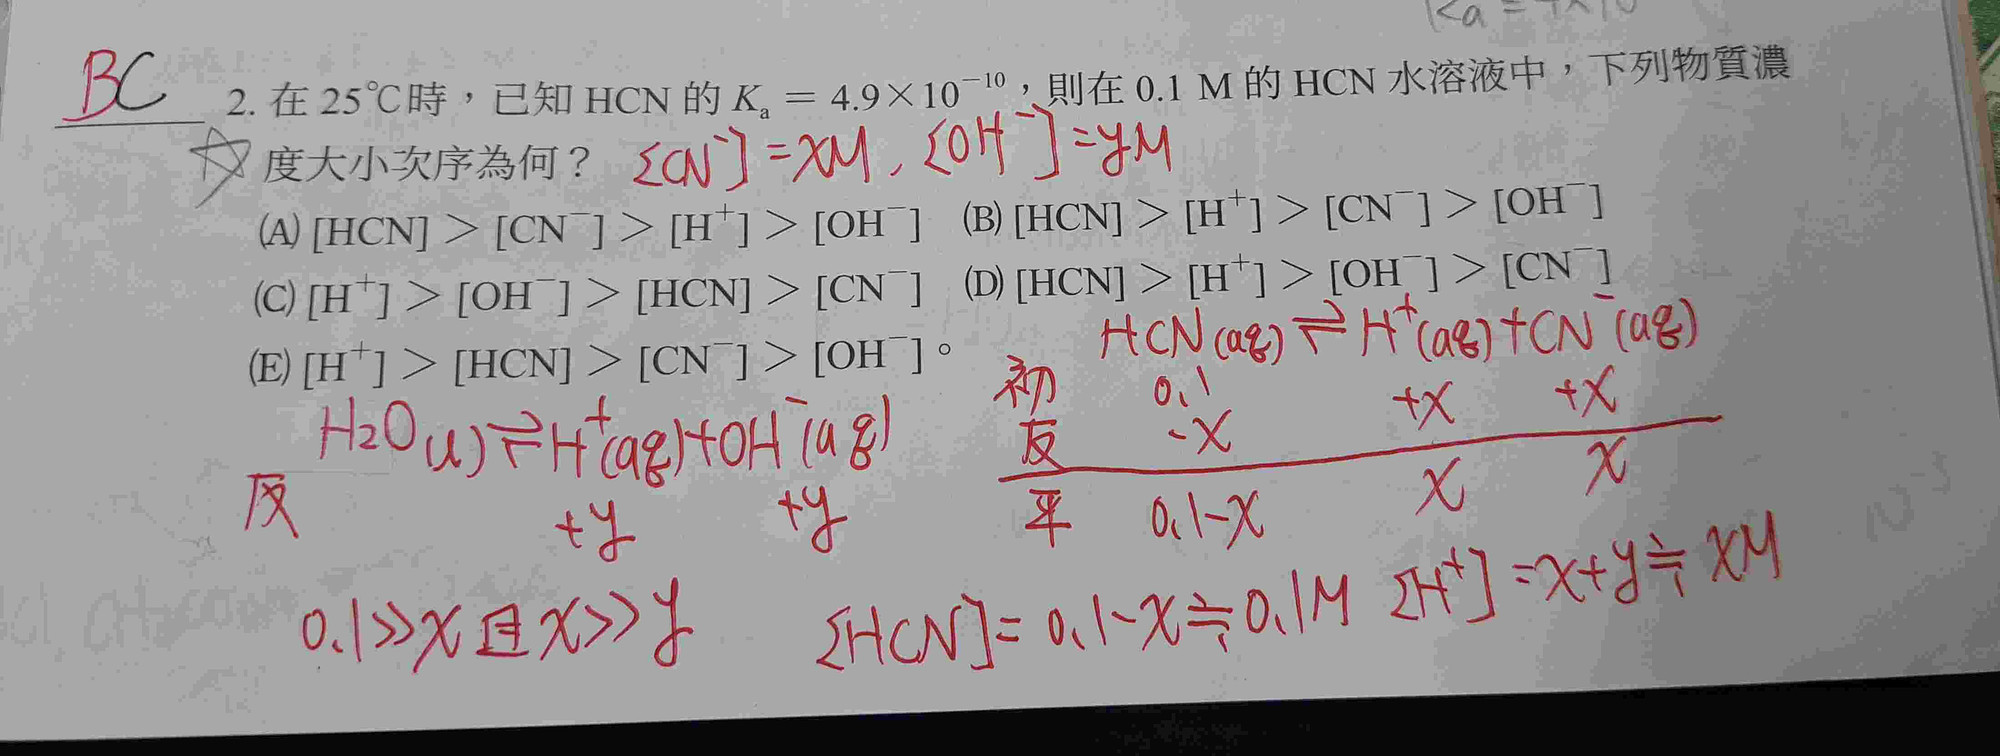 Ka = 4×10
BC 2. 在 25℃時，已知 HCN 的 Kₐ = 4.9×10⁻¹⁰，則在 0.1 M 的 HCN 水溶液中，下列物質濃
度大小次序為何？ [CN⁻]=xM、[OH⁻]=yM
(A) [HCN] > [CN⁻] > [H⁺] > [OH⁻] (B) [HCN] > [H⁺] > [CN⁻] > [OH⁻]
(C) [H⁺] > [OH⁻] > [HCN] > [CN⁻] (D) [HCN] > [H⁺] > [OH⁻] > [CN⁻]
(E) [H⁺] > [HCN] > [CN⁻] > [OH⁻]。
HCN(aq)⇌H⁺(aq)+CN⁻(aq)
初 0.1
反 -x +x +x
平 0.1-x x x
H2O(l)⇌H⁺(aq)+OH⁻(aq)
反 +y +y
0.1>>x且x>>y [HCN]=0.1-x≒0.1M [H⁺]=x+y≒xM